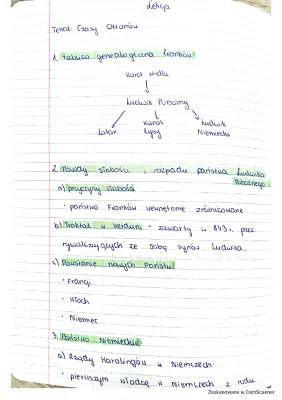 Lekcja
Temat: Czasy Ottonów
1. Tablica genealogiczna Franków
Karol Wielki
Ludwik Pobożny
Lotar Karol Łysy Ludwik Niemiecki
2. Powody słabości i rozpadu państwa Ludwika Pobożnego
a) przyczyny słabości
• państwo Franków wewnętrznie zróżnicowane
b) Traktat w Verdun - zawarty w 843 r. przez
rywalizujących ze sobą synów Ludwika.
c) Powstanie nowych Państw:
• Francji
• Włoch
• Niemiec
3. Państwo Niemieckie
a) Rządy Karolingów w Niemczech.
• pierwszym władcą w Niemczech z rodu
Zeskanowane w CamScanner